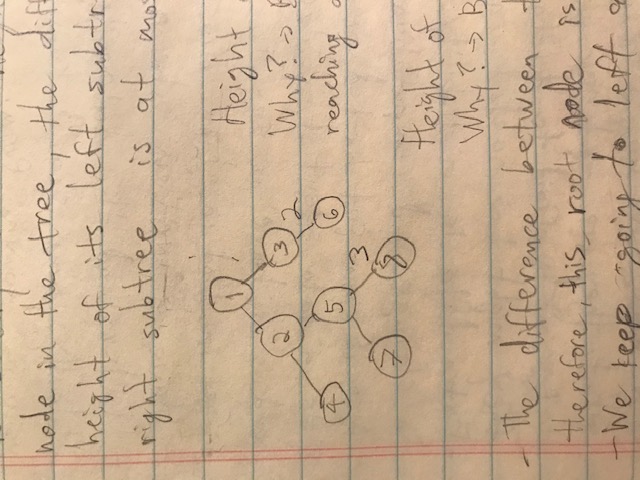 node in the tree, the diff
height of its left subtr
right subtree is at mos
1
Height
2 3 2
Why? →
4 5 6
reaching
3
7 8
Height of
Why? → B
- The difference between t
therefore, this root node is
- We keep going to left